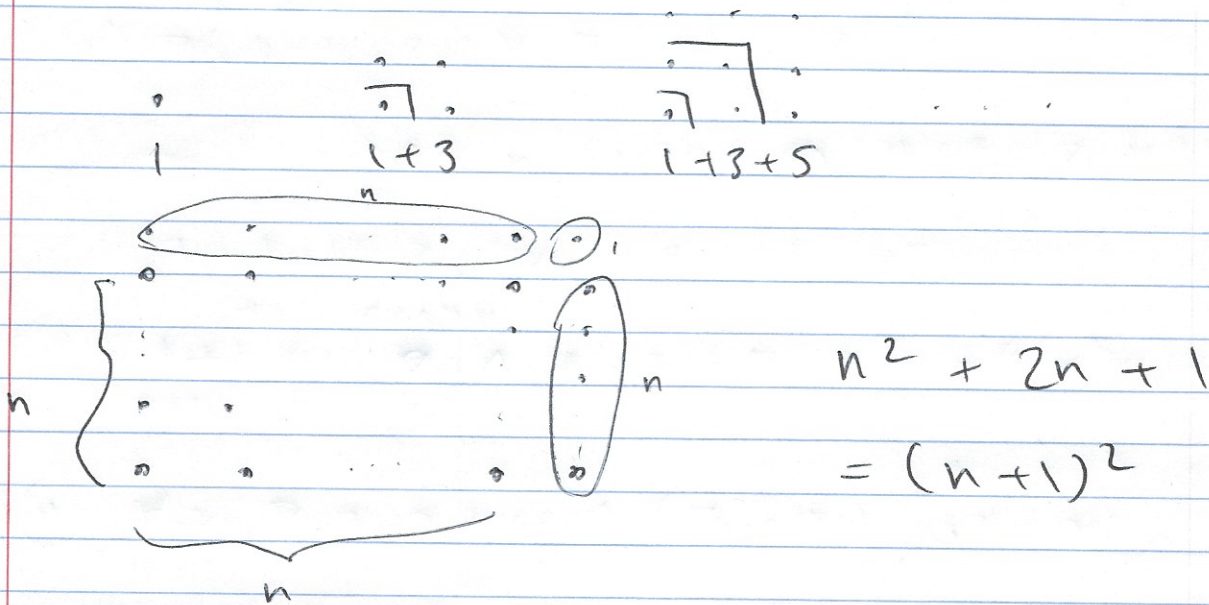 1 1+3 1+3+5
n
1
n n
n² + 2n + 1
= (n+1)²
n